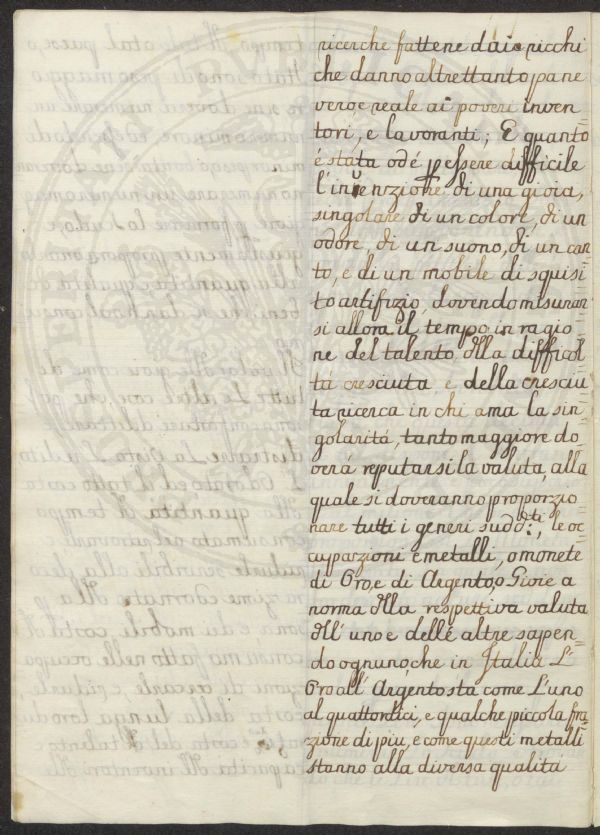 ricerche fattene dai ricchi
che danno altrettanto pane
vero, e reale ai poveri inven
tori, e lavoranti; E quanto
é stata od é p essere difficile
l'invenzione di una gioia,
singolare di un colore, di un
odore, di un suono, di un can
to, e di un mobile di squisi
to artifizio, dovendo misurar
si allora il tempo in ragio
ne del talento, dlla difficol
tá cresciuta, e della cresciu
ta ricerca in chi ama la sin
golaritá, tanto maggiore do
verá reputarsi la valuta, alla
quale si doveranno proporzio
nare tutti i generi sudd:ti, le oc
cuparzioni e metalli, o monete
di Oro, e di Argento, o Gioie a
norma dlla respettiva valuta
dll' uno e delle altre sapen
do ognuno, che in Italia L'
Oro all' Argento sta come L'uno
al quattordici, e qualche piccola fra
zione di piu, e come questi metalli
stanno alla diversa qualitá